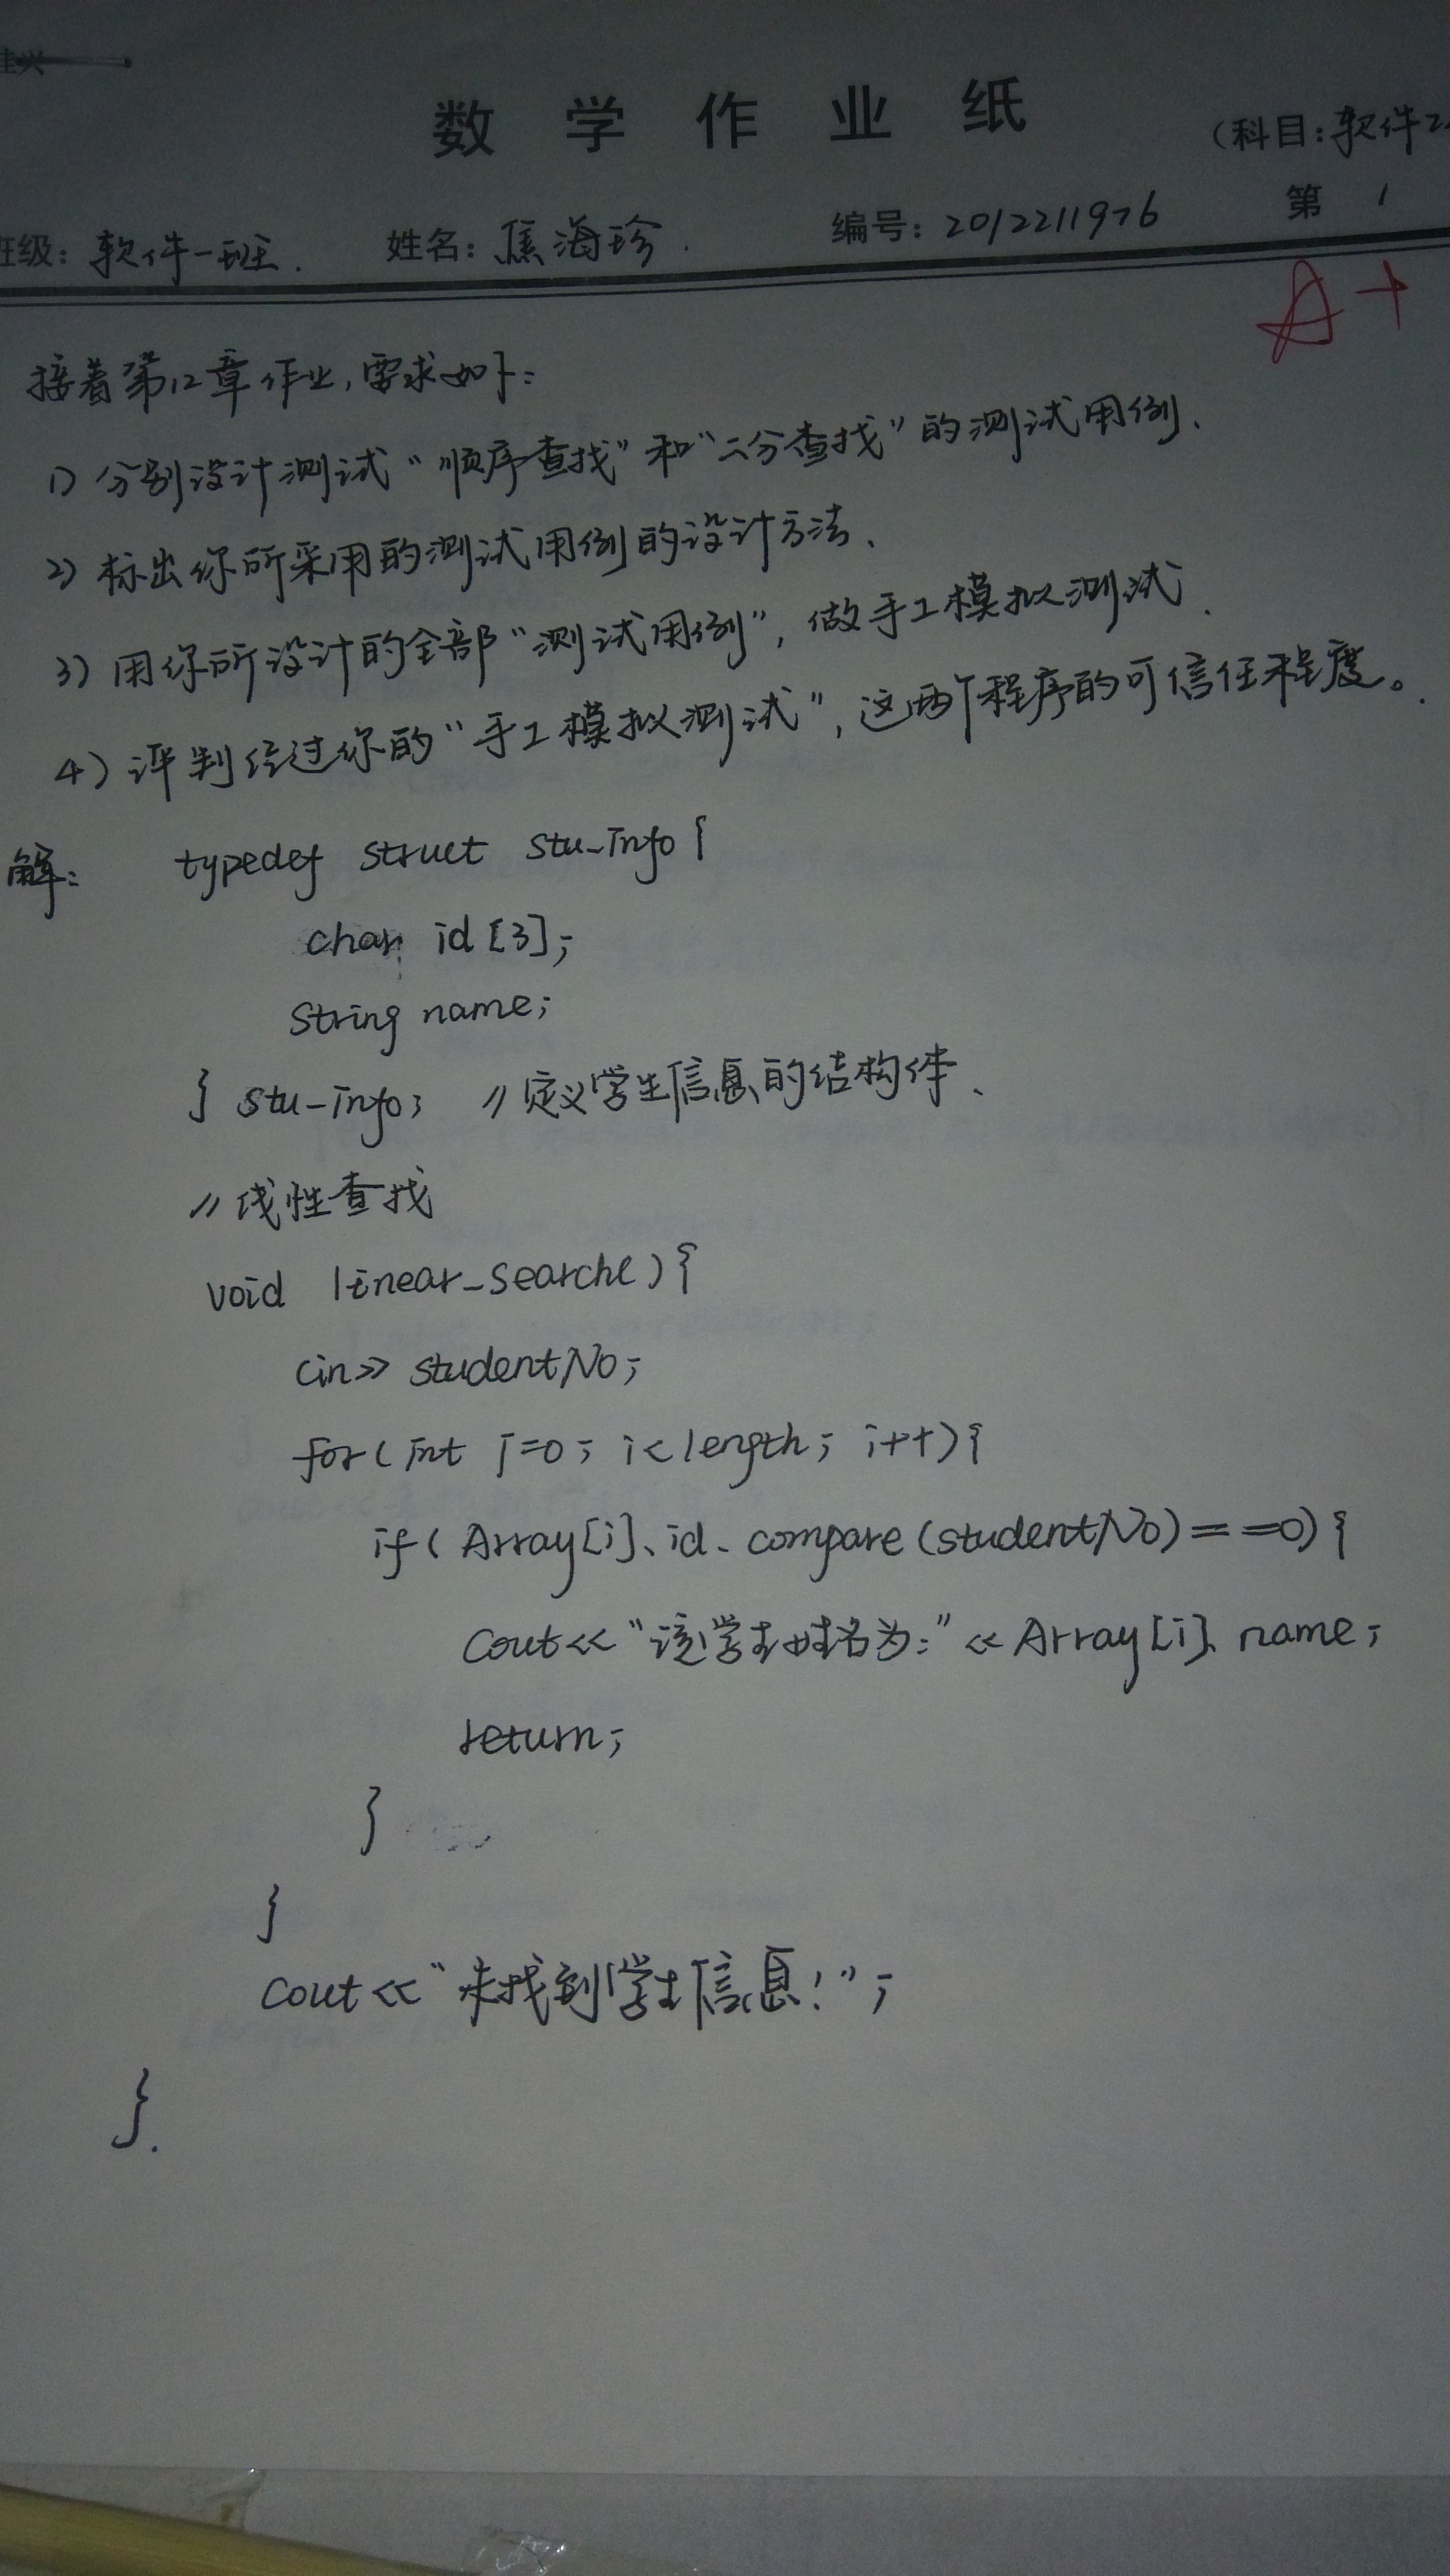 佳兴
数学作业纸
(科目:软件
班级: 软件一班. 姓名: 焦海珍. 编号: 2012211976 第 1
A+
接着第12章作业,需求如下:
1) 分别设计测试“顺序查找”和“二分查找”的测试用例、
2) 标出你所采用的测试用例的设计方法、
3) 用你所设计的全部“测试用例”, 做手工模拟测试.
4) 评判经过你的“手工模拟测试”, 这两个程序的可信任程度。
解: typedef struct stu-info{
char id[3];
String name;
} stu-info; //定义学生信息的结构体、
//线性查找
void linear-search(){
cin>> studentNo;
for(int i=0; i<length; i++){
if( Array[i].id.compare(studentNo)==0){
cout<<"该学生姓名为:"<<Array[i].name;
return;
}
}
cout<<"未找到学生信息!";
}.